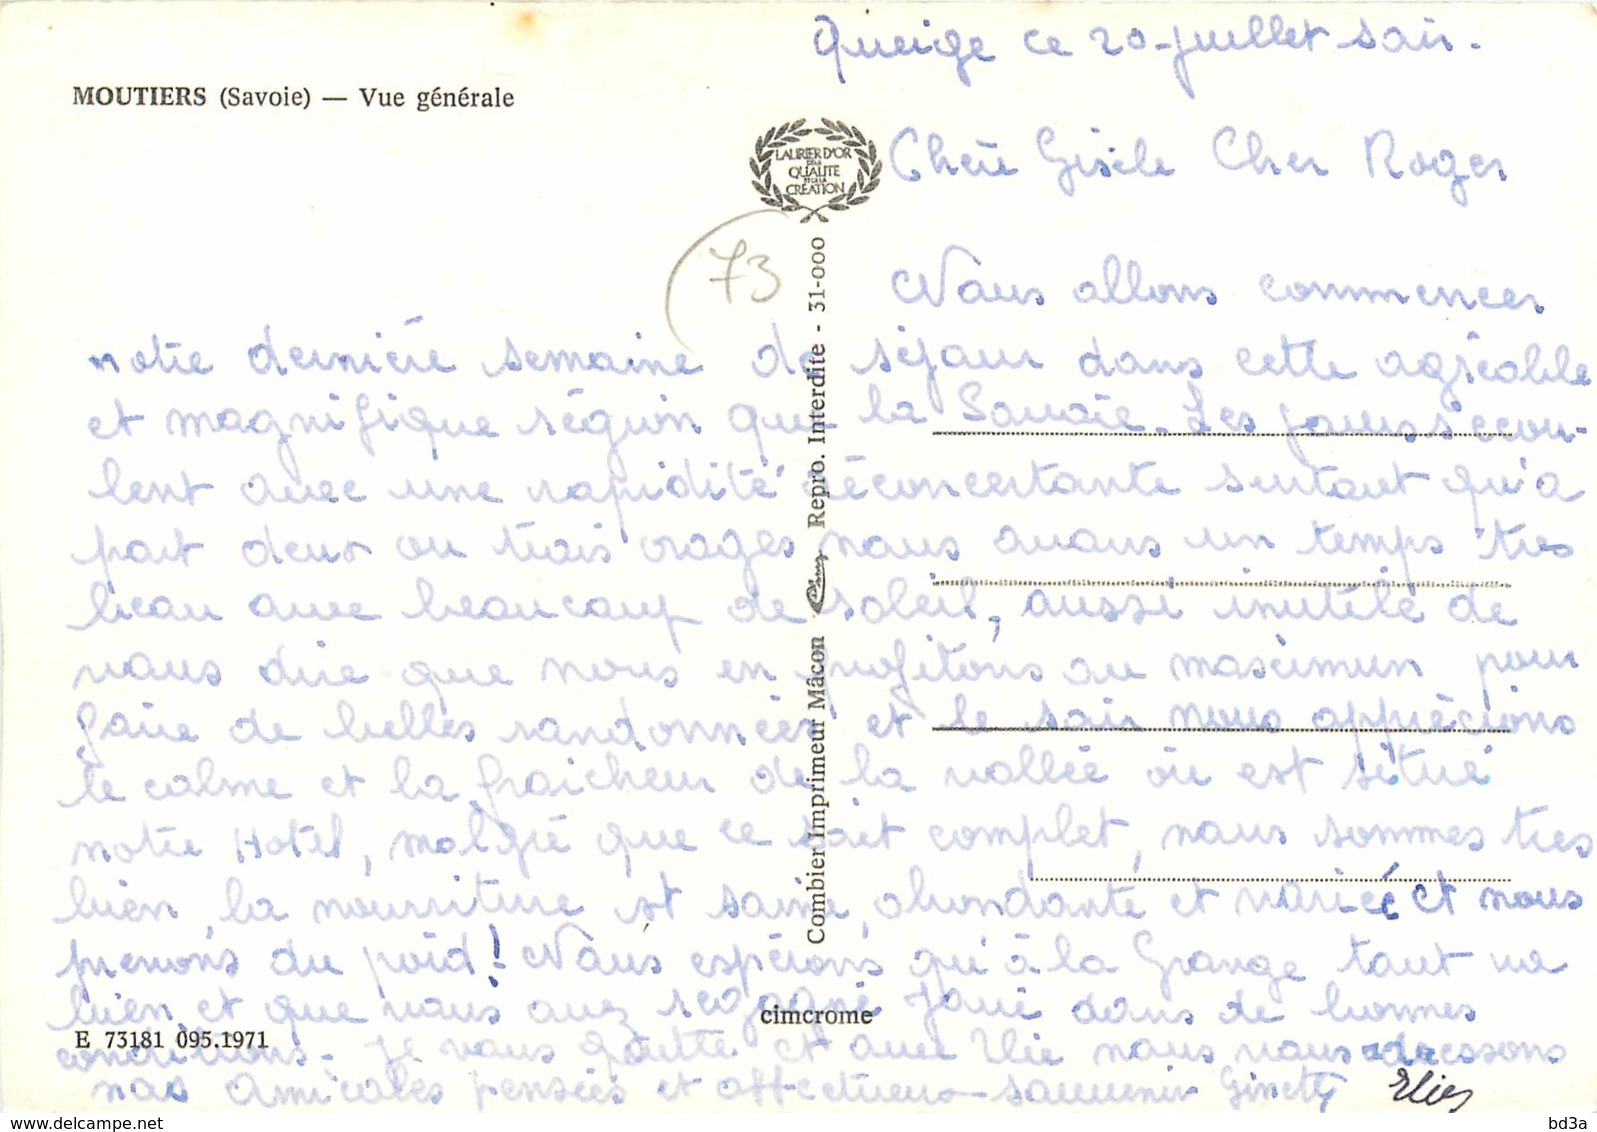 Queige ce 20 juillet soir.
MOUTIERS (Savoie) — Vue générale
LAURIER D'OR
DE LA
QUALITE
ET DE LA
CREATION
Chère Gisèle Cher Roger
73
Nous allons commencer
notre dernière semaine de séjour dans cette agréable
et magnifique région que la Savoie. Les jours s'écou-
lent avec une rapidité déconcertante surtout qu'à
part deux ou trois orages nous avons un temps très
beau avec beaucoup de soleil, aussi inutile de
vous dire que nous en profitons au maximum pour
faire de belles randonnées et le soir nous apprécions
le calme et la fraicheur de la vallée où est situé
notre Hotel, malgré que ce soit complet, nous sommes très
bien, la nourriture est saine, abondante et variée et nous
prenons du poid! Nous espérons qu'à la Grange tout va
bien et que vous avez regagné dans de bonnes
conditions. Je vous quitte et avec Elie nous vous adressons
nos amicales pensées et affectueux souvenir Ginette Elie
Combier Imprimeur Mâcon Repro. Interdite - 31-000
cimcrome
E 73181 095.1971
www.delcampe.net
bd3a